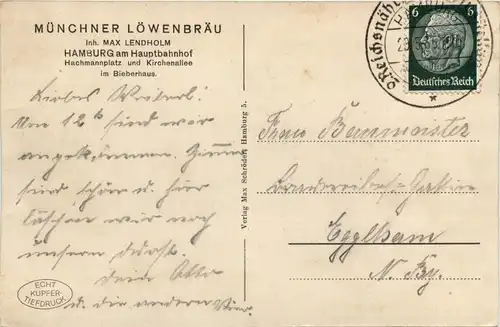 MÜNCHNER LÖWENBRÄU
Inh. MAX LENDHOLM
HAMBURG am Hauptbahnhof
Hachmannplatz und Kirchenallee
im Bieberhaus.
Liebes Weiberl!
Um 12 h sind wir
angekommen. Zimmer
sind schön u. hier
löschen wir noch
unsern Durst.
Dein Otto
u. die andern
ECHT
KUPFER-
TIEFDRUCK
Verlag Max Schröder, Hamburg 5.
6
Deutsches Reich
Frau Baumeister
Egglham
N. By.